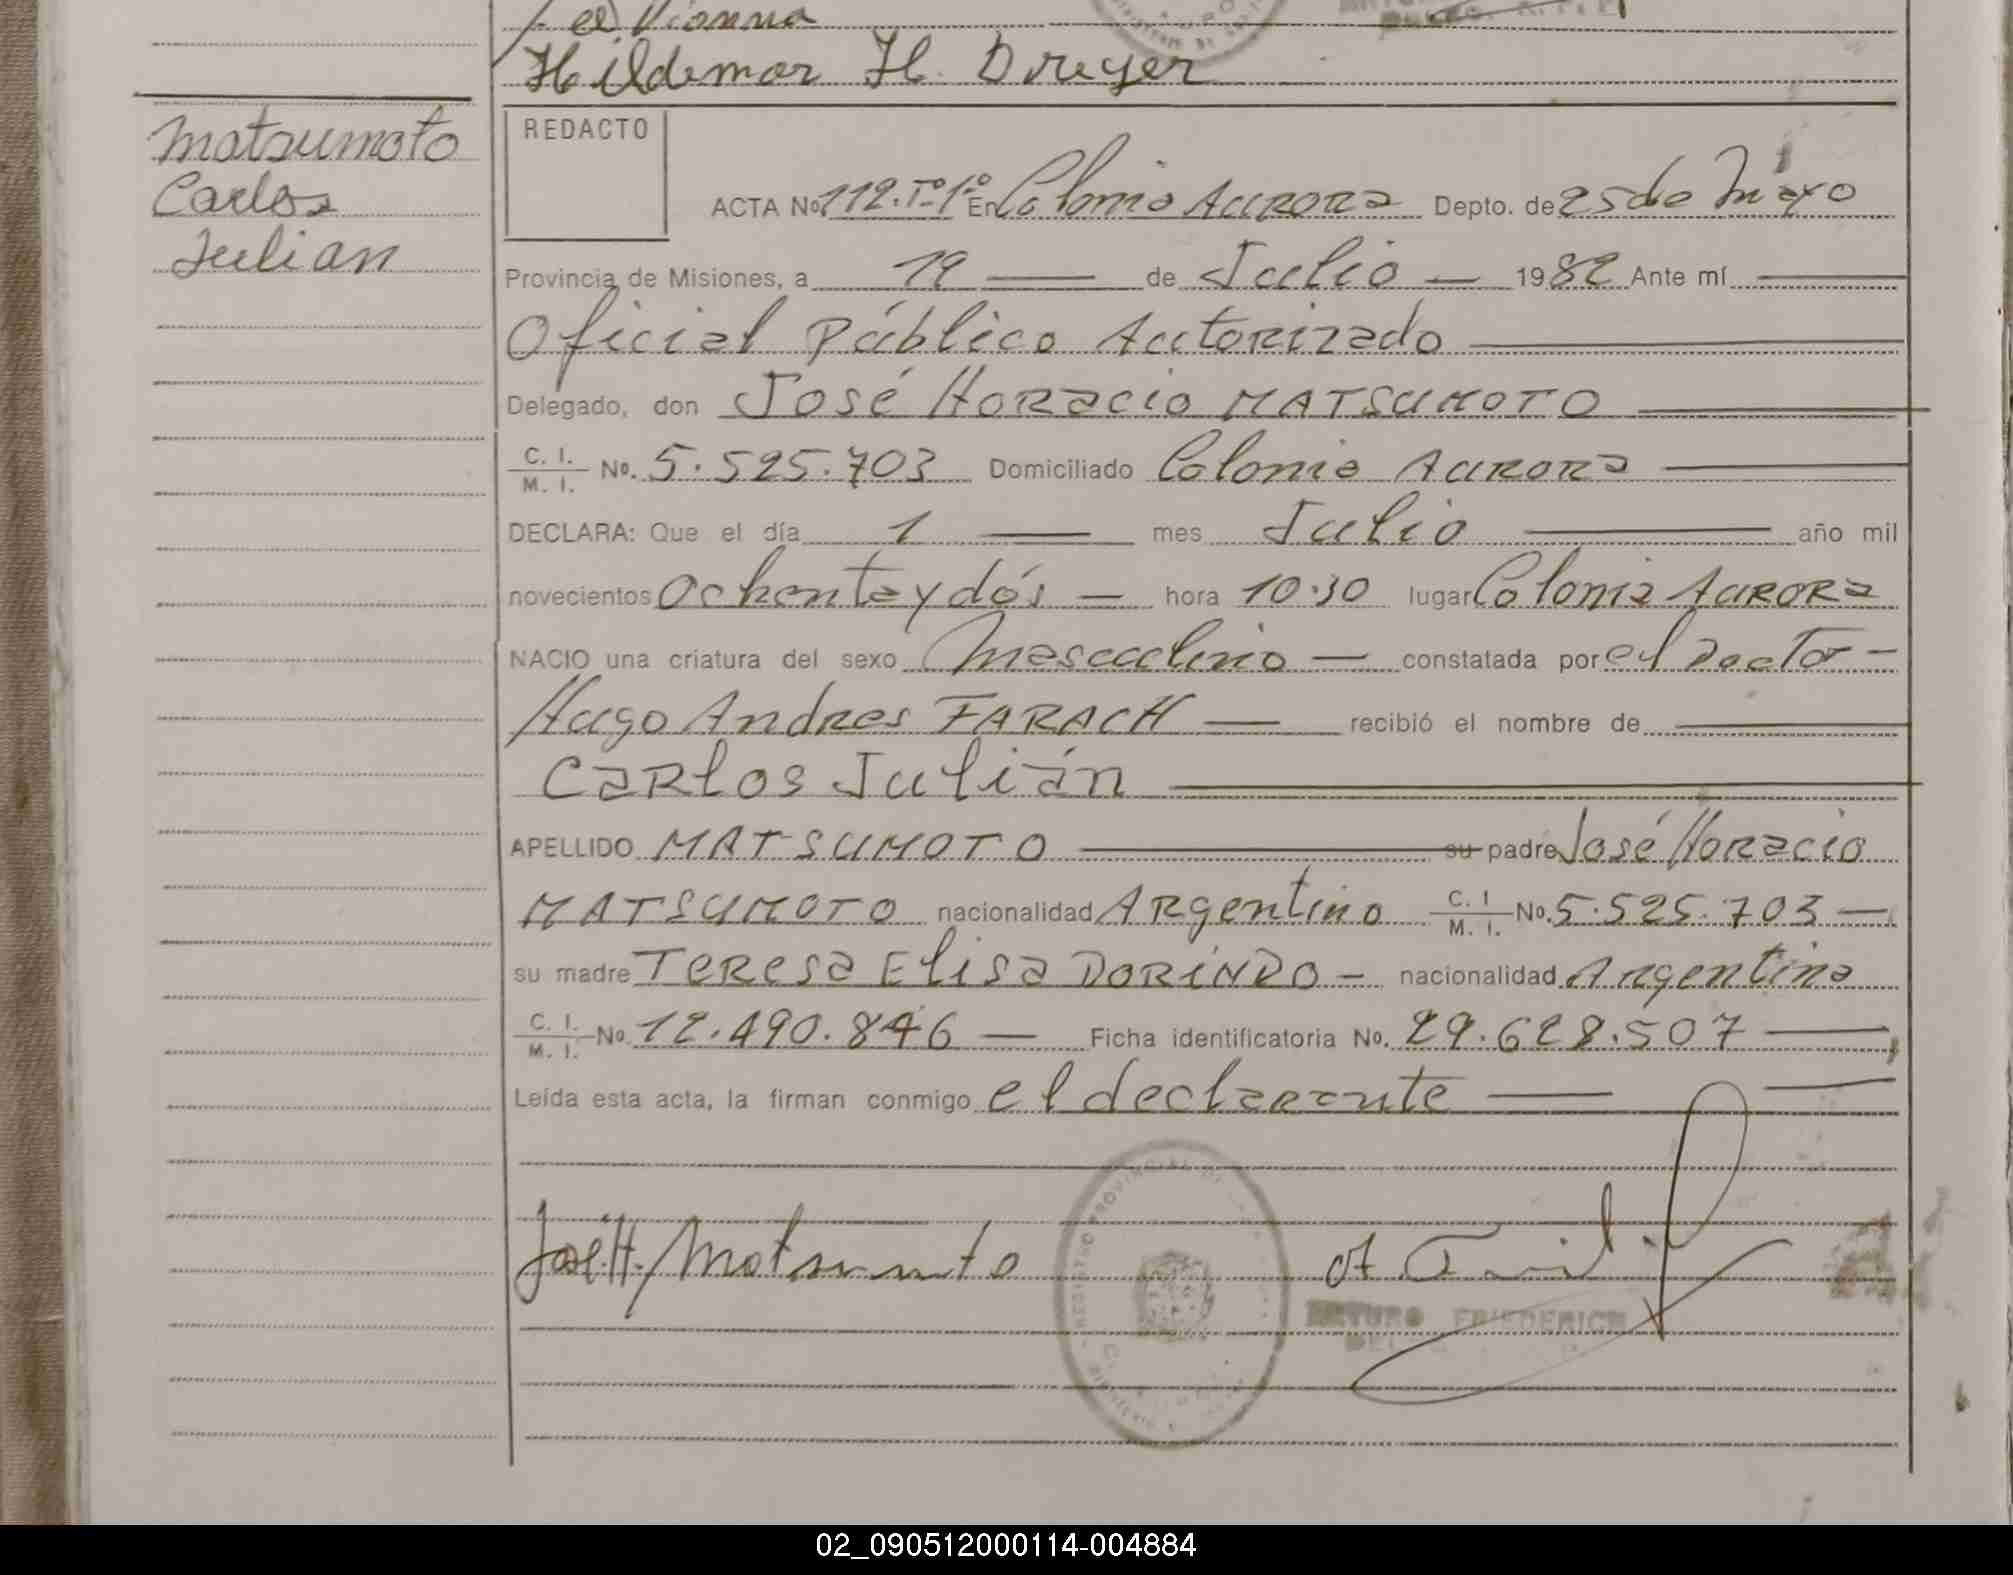 Vianna
Hildemar H. Dreyer
Matsumoto
Carlos
Julian
REDACTO
ACTA No. 112. Tº 1º En Colonia Aurora Depto. de 25 de Mayo
Provincia de Misiones, a 19 de Julio 1982 Ante mí
Oficial Público Autorizado
Delegado, don José Horacio MATSUMOTO
C. I. / M. I. No. 5.525.703 Domiciliado Colonia Aurora
DECLARA: Que el día 1 mes Julio año mil
novecientos Ochenta y dós hora 10.30 lugar Colonia Aurora
NACIO una criatura del sexo Masculino constatada por el Doctor
Hugo Andres FARACH recibió el nombre de
Carlos Julián
APELLIDO MATSUMOTO su padre José Horacio
MATSUMOTO nacionalidad Argentino C. I / M. I. No. 5.525.703
su madre Teresa Elisa DORINDO nacionalidad Argentina
C. I. / M. I. No. 12.490.846 Ficha identificatoria No. 29.628.507
Leída esta acta, la firman conmigo el declarante
José H. Matsumoto
ARTURO FRIEDERICH
02_090512000114-004884